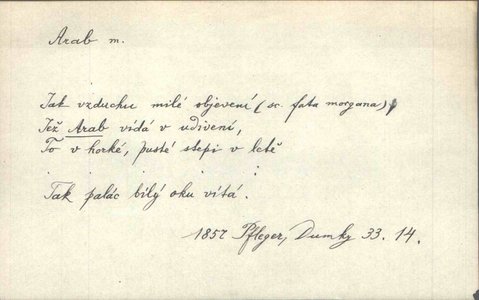 Arab m.
Jak vzduchu milé objevení (sc. fata morgana)
Jež Arab vídá v udivení,
To v horké, pusté stepi v letě
. . . . . .
Tak palác bílý oku vítá.
1857 Pfleger, Dumky 33. 14.